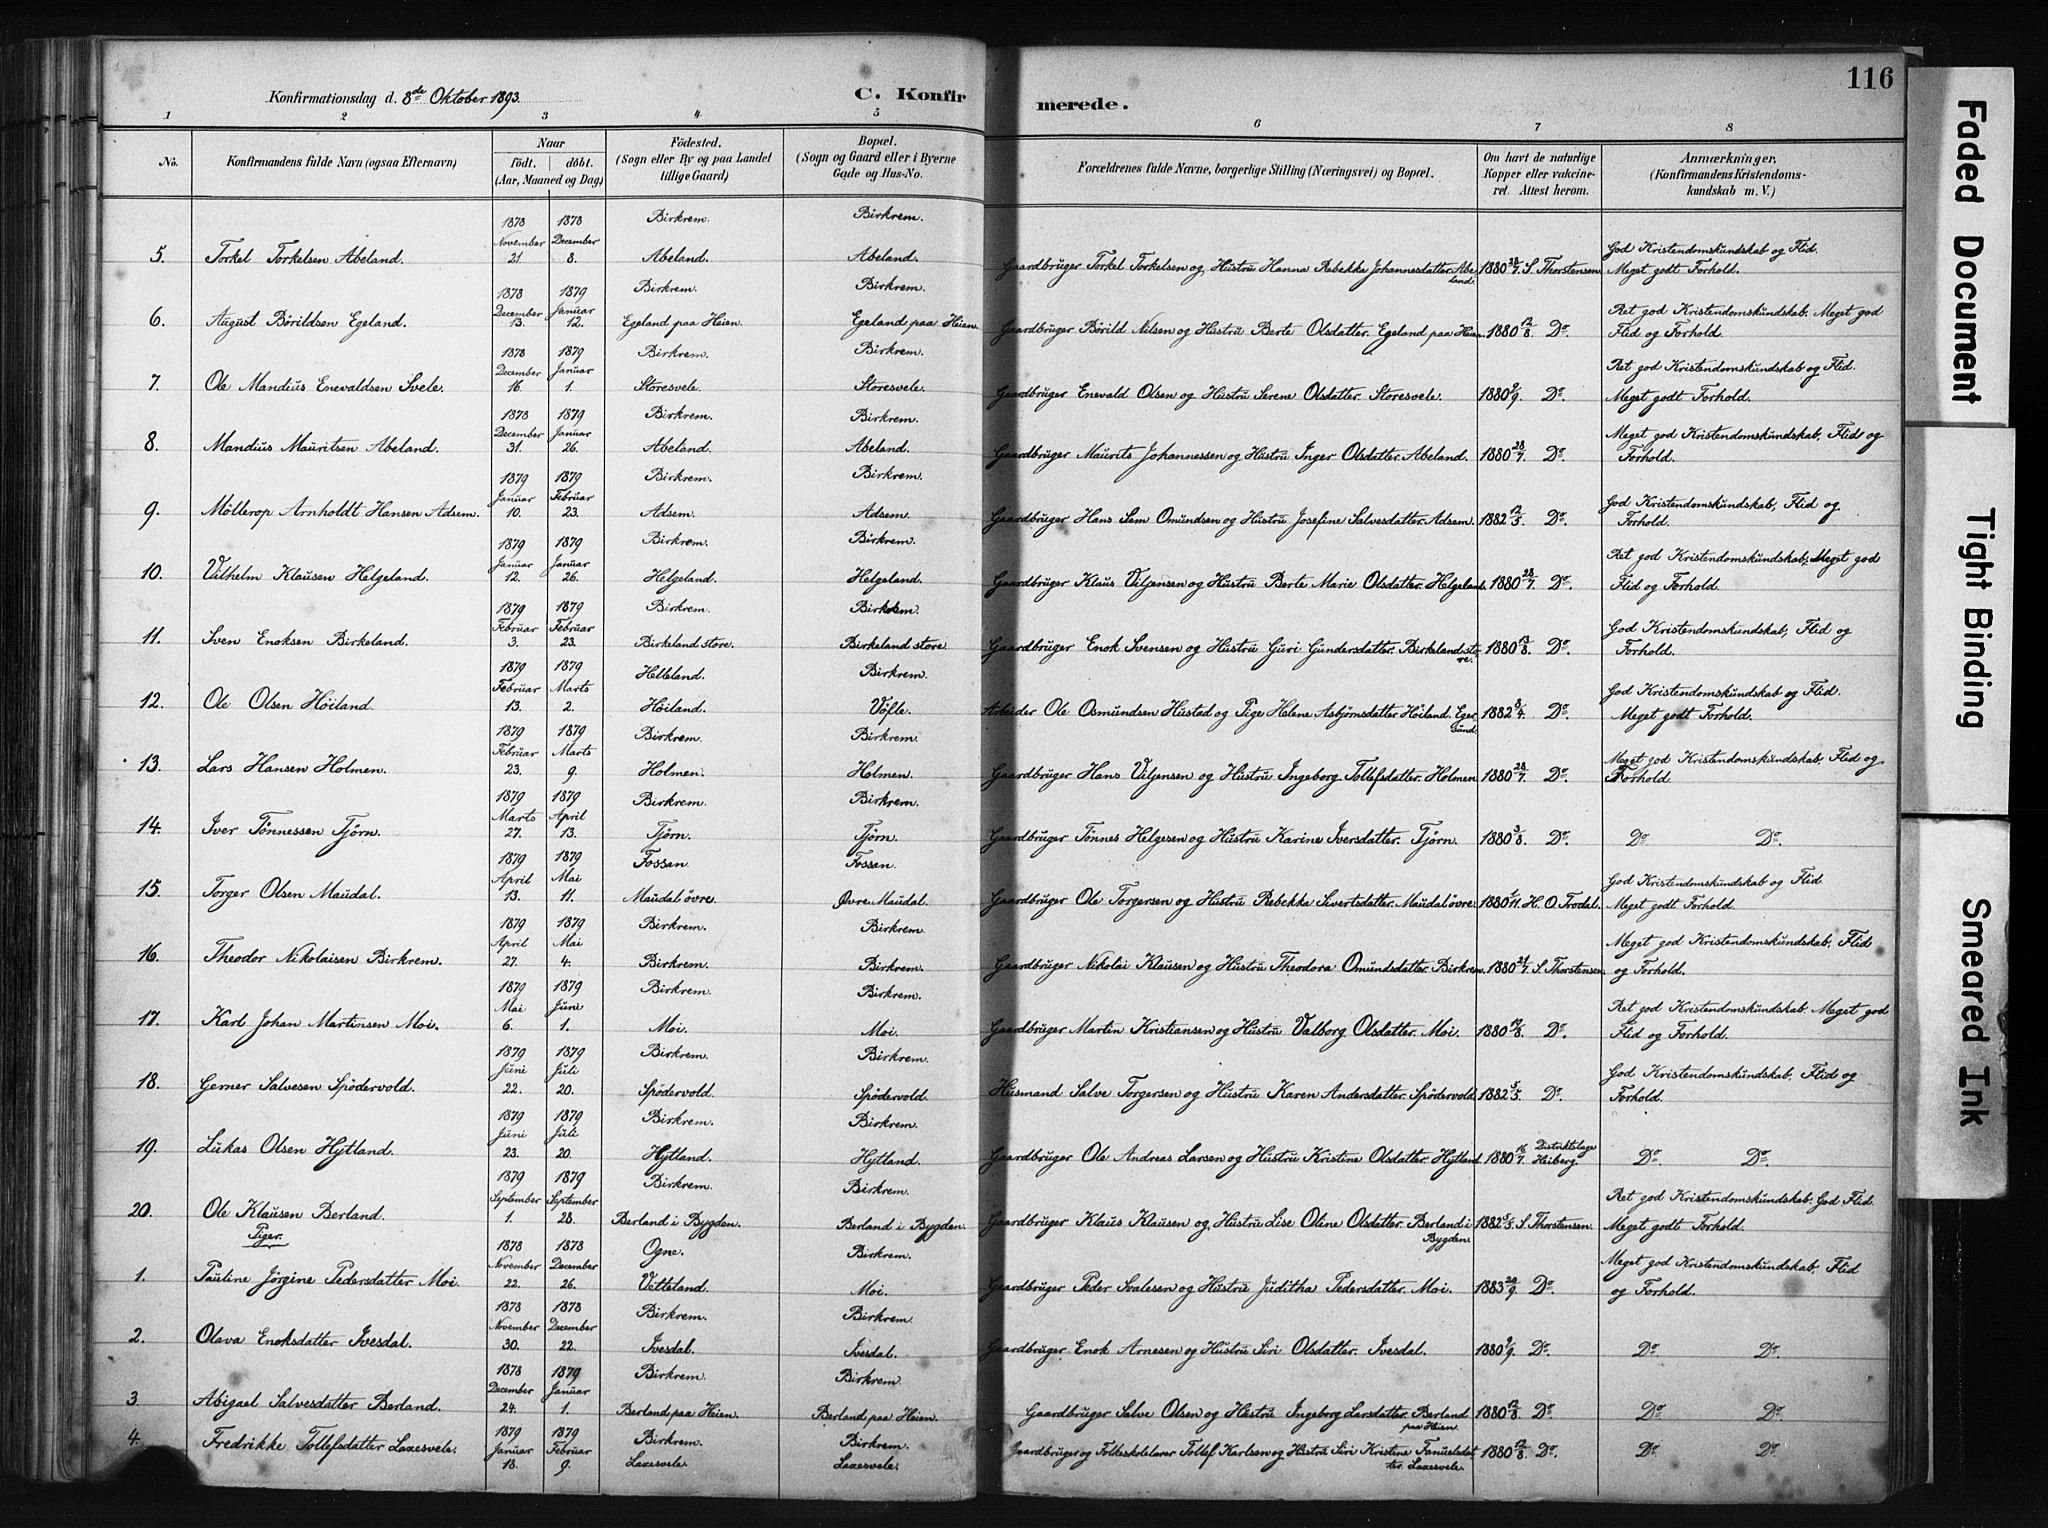 116
Konfirmationsdag d. 8de Oktober 1893.
C. Konfirmerede.
1 2 3 4 5 6 7 8
No. Konfirmandens fulde Navn (ogsaa Efternavn) Naar födt. döbt. (Aar, Maaned og Dag) Födested. (Sogn eller By og paa Landet tillige Gaard) Bopæl. (Sogn og Gaard eller i Byerne Gade og Hus-No. Forældrenes fulde Navne, borgerlige Stilling (Næringsvei) og Bopæl. Om havt de naturlige Kopper eller vakcineret. Attest herom. Anmærkninger, (Konfirmandens Kristendomskundskab m. V.)
5. Torkel Torkelsen Abeland. 1878 November 21. 1878 December 8. Birkrem. Abeland. Birkrem. Abeland. Gaardbruger Torkel Torkelsen og Hustru Hanna Rebekke Johannesdatter. Abeland. 1880 28/7. S. Thorstensen. God Kristendomskundskab og Flid. Meget godt Forhold.
6. August Börildsen Egeland. 1878 December 13. 1879 Januar 12. Birkrem. Egeland paa Heien. Birkrem. Egeland paa Heien. Gaardbruger Börild Nilsen og Hustru Berte Olsdatter. Egeland paa Heien. 1880 12/8. Do. Ret god Kristendomskundskab. Meget god Flid og Forhold.
7. Ole Mandius Enevaldsen Svele. 1878 December 16 1879 Januar 1. Birkrem. Storesvele. Birkrem. Storesvele. Gaardbruger Enevald Olsen og Hustru Serene Olsdatter. Storesvele. 1880 2/9. Do. Ret god Kristendomskundskab og Flid. Meget godt Forhold.
8. Mandius Mauritsen Abeland. 1878 December 31. 1879 Januar 26. Birkrem. Abeland. Birkrem. Abeland. Gaardbruger Maurits Johannessen og Hustru Inger Olsdatter. Abeland. 1880 28/7. Do. Meget god Kristendomskundskab, Flid og Forhold.
9. Möllerop Arnholdt Hansen Adsem. 1879 Januar 10. 1879 Februar 23. Birkrem. Adsem. Birkrem. Adsem. Gaardbruger Hans Sem Omundsen og Hustru Josefine Salvesdatter. Adsem. 1882 12/5. Do. God Kristendomskundskab, Flid og Forhold.
10. Vilhelm Klausen Helgeland. 1879 Januar 12. 1879 Januar 26. Birkrem. Helgeland. Birkrem. Helgeland. Gaardbruger Klaus Viljensen og Hustru Berte Marie Olsdatter. Helgeland. 1880 28/7. Do. Ret god Kristendomskundskab. Meget god Flid og Forhold.
11. Sven Enoksen Birkeland. 1879 Februar 3. 1879 Februar 23. Birkrem. Birkeland store. Birkrem. Birkeland store Gaardbruger Enok Svensen og Hustru Guri Gundersdatter. Birkeland store. 1880 13/8. Do. God Kristendomskundskab, Flid og Forhold.
12. Ole Olsen Höiland. 1879 Februar 13. 1879 Marts 2. Helleland. Höiland. Birkrem. Vöfle. Arbeider Ole Osmundsen Hustad og Pige Helene Asbjörnsdatter Höiland. Egersund. 1882 8/4. Do. God Kristendomskundskab og Flid. Meget godt Forhold.
13. Lars Hansen Holmen. 1879 Februar 23. 1879 Marts 9. Birkrem. Holmen. Birkrem. Holmen. Gaardbruger Hans Viljensen og Hustru Ingeborg Tollefsdatter. Holmen. 1880 28/7. Do. Meget god Kristendomskundskab, Flid og Forhold.
14. Iver Tönnessen Tjörn. 1879 Marts 27. 1879 April 13. Birkrem. Tjörn. Birkrem. Tjörn. Gaardbruger Tönnes Helgesen og Hustru Karine Iversdatter. Tjörn. 1880 3/8. Do. Do. Do.
15. Torger Olsen Maudal. 1879 April 13. 1879 Mai 11. Fossan. Maudal övre. Fossan. Övre Maudal. Gaardbruger Ole Torgersen og Hustru Rebekka Sivertsdatter. Maudal övre. 1880 1/11. H. O. Frodal. God Kristendomskundskab og Flid Meget godt Forhold.
16. Theodor Nikolaisen Birkrem. 1879 April 27. 1879 Mai 4. Birkrem. Birkrem. Birkrem. Birkrem. Gaardbruger Nikolai Klausen og Hustru Theodora Omundsdatter. Birkrem. 1880 21/7. S. Thorstensen. Meget god Kristendomskundskab, Flid og Forhold.
17. Karl Johan Martinsen Moi. 1879 Mai 6. 1879 Juni 1. Birkrem. Moi. Birkrem. Moi. Gaardbruger Martin Kristiansen og Hustru Valborg Olsdatter. Moi. 1880 12/8. Do. Ret god Kristendomskundskab. Meget god Flid og Forhold.
18. Gerner Salvesen Spödervold. 1879 Juni 22. 1879 Juli 20. Birkrem. Spödervold. Birkrem. Spödervold. Husmand Salve Torgersen og Hustru Karen Andersdatter. Spödervold. 1882 5/5. Do. God Kristendomskundskab, Flid og Forhold.
19. Lukas Olsen Hytland. 1879 Juni 23. 1879 Juli 20. Birkrem. Hytland. Birkrem. Hytland. Gaardbruger Ole Andreas Larsen og Hustru Kristine Olsdatter. Hytland. 1880 16/7. Distriktslæge Heiberg. Do. Do.
20. Ole Klausen Berland. 1879 September 1. 1879 September 28. Birkrem. Berland i Bygden. Birkrem. Berland i Bygden. Gaardbruger Klaus Klausen og Hustru Lise Oline Olsdatter. Berland i Bygden. 1882 5/5. S. Thorstensen. Ret god Kristendomskundskab. God Flid. Meget godt Forhold.
Piger.
1. Pauline Jörgine Pedersdatter Moi. 1878 November 22. 1878 December 26. Ogne. Vetteland. Birkrem. Moi. Gaardbruger Peder Svalesen og Hustru Juditha Pedersdatter. Moi. 1883 20/9. Do. Meget god Kristendomskundskab, Flid og Forhold.
2. Olava Enoksdatter Ivesdal. 1878 November 30. 1878 December 22. Birkrem. Ivesdal. Birkrem. Ivesdal. Gaardbruger Enok Arnesen og Hustru Siri Olsdatter. Ivesdal. 1880 2/9. Do. Do. Do.
3. Abigael Salvesdatter Berland. 1878 December 24. 1879 Januar 1. Birkrem. Berland paa Heien. Birkrem. Berland paa Heien. Gaardbruger Salve Olsen og Hustru Ingeborg Larsdatter. Berland paa Heien. 1880 12/8. Do. Do. Do.
4. Fredrikke Tollefsdatter Laxesvele. 1879 Januar 18. 1879 Februar 9. Birkrem. Laxesvele. Birkrem. Laxesvele. Gaardbruger og Folkeskolelærer Tollef Karlsen og Hustru Siri Kristine Tanuelsdatter. Laxesvele. 1880 12/8. Do. Do. Do.
Faded Document
Tight Binding
Smeared Ink